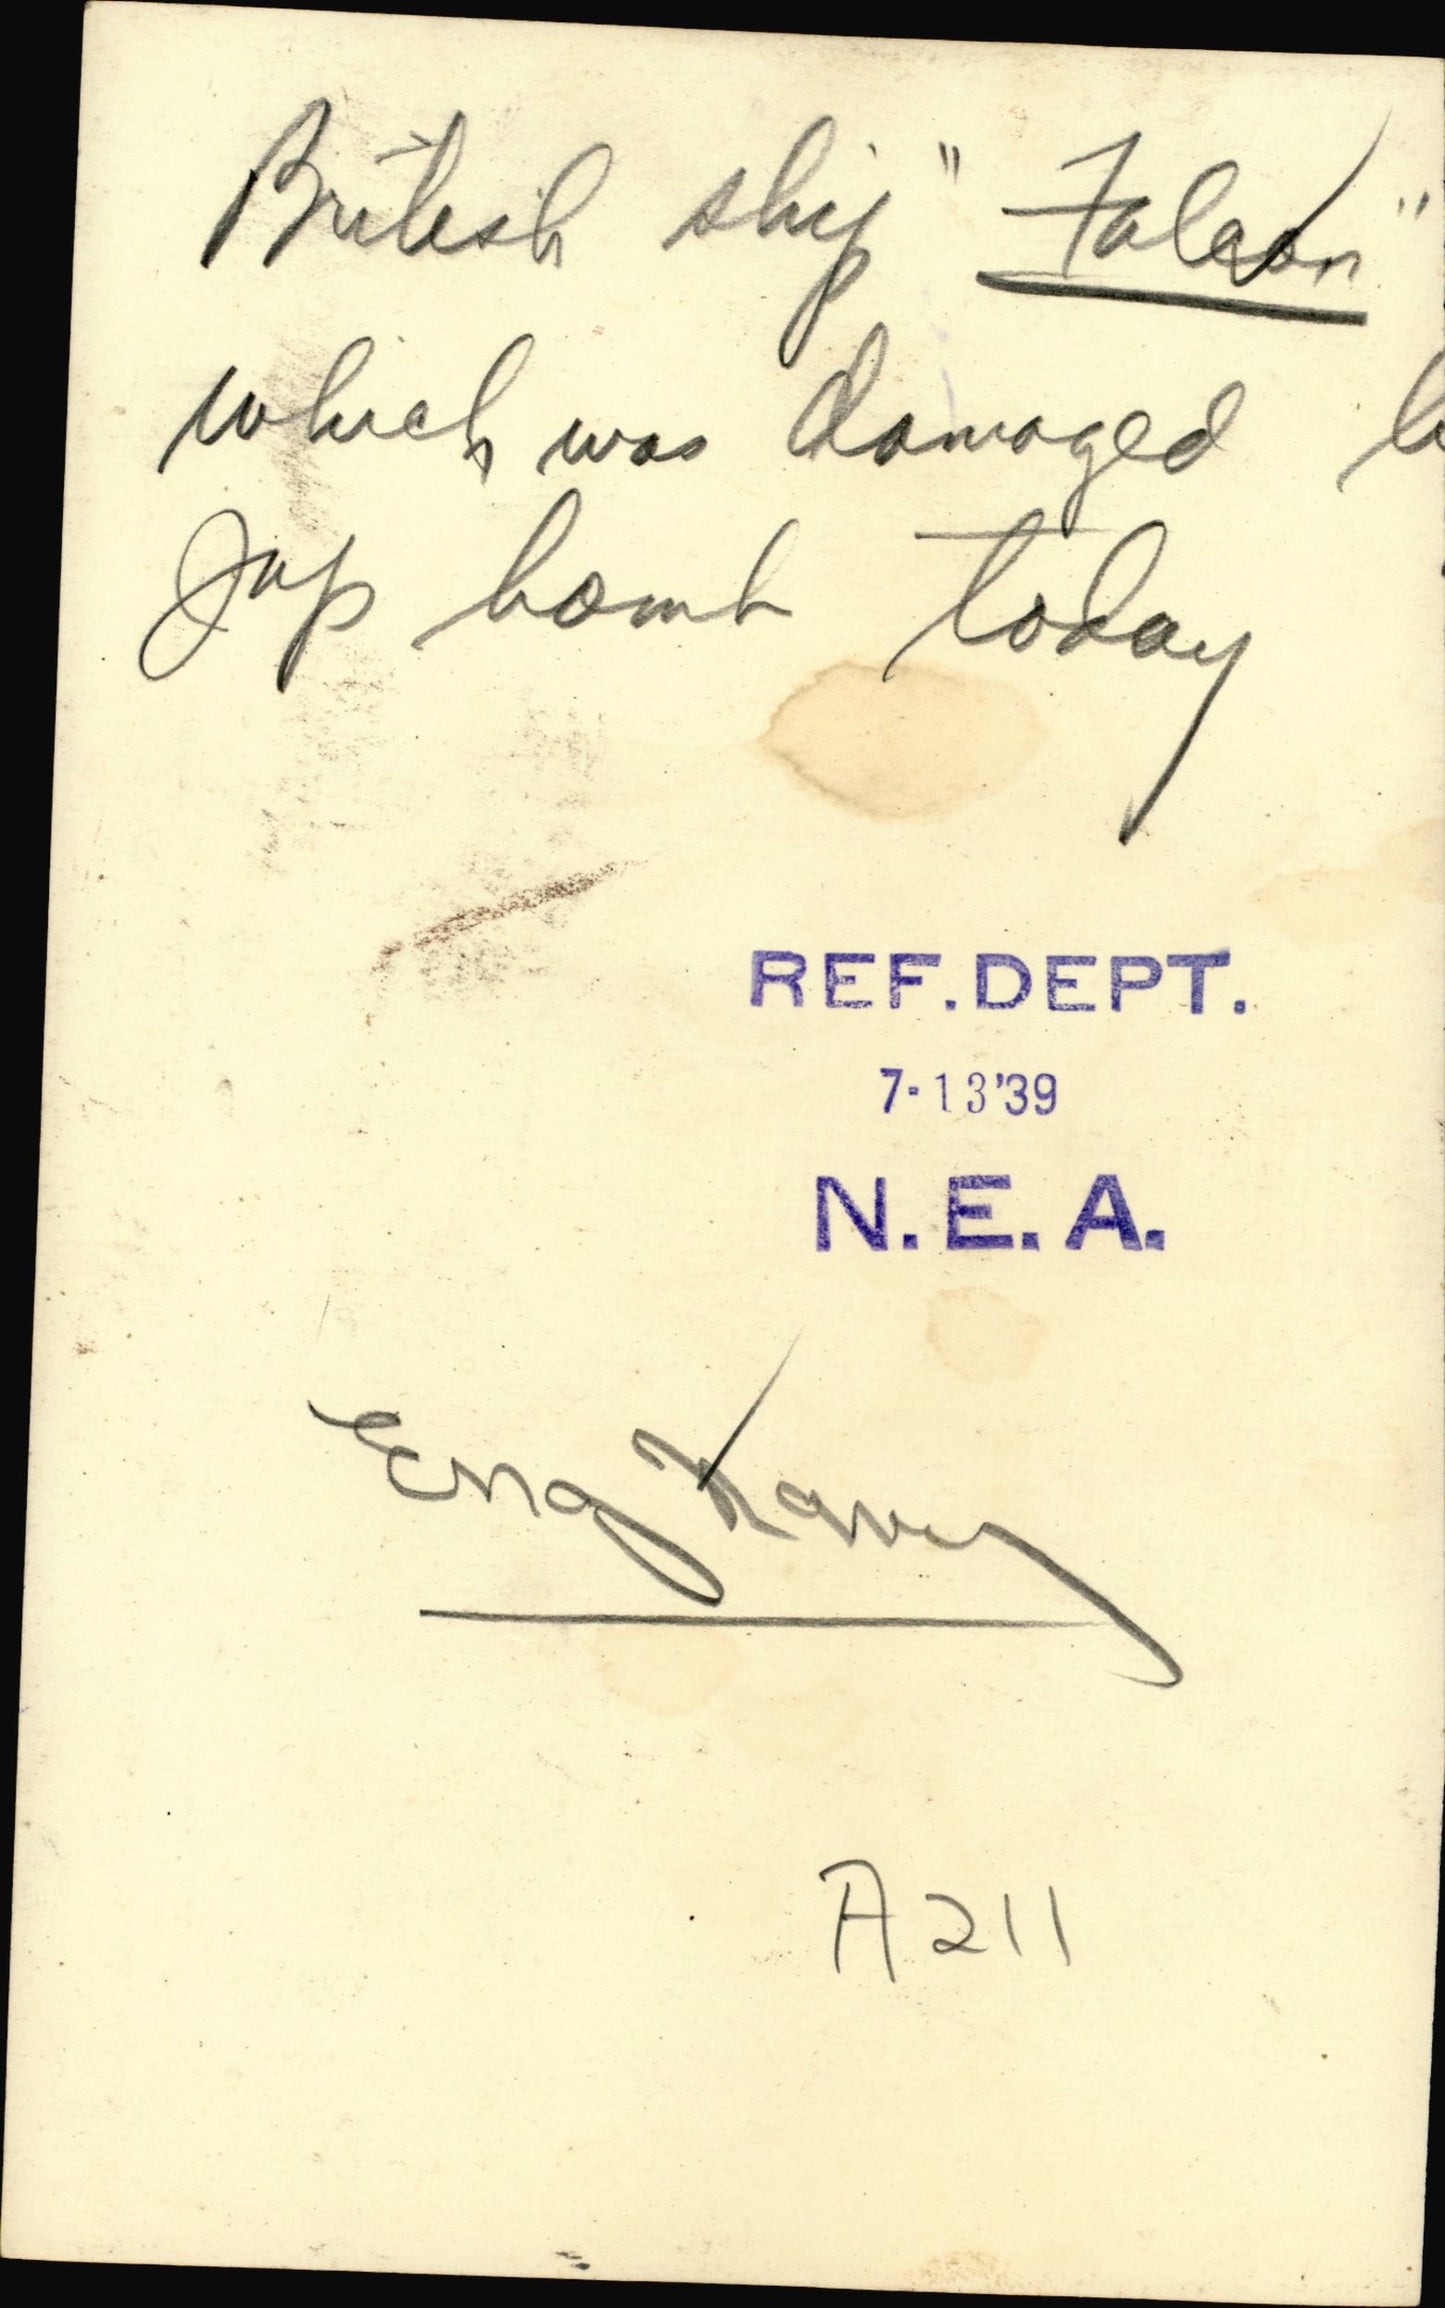 British ship "Falcon"
which was damaged b
Jap bomb today
REF. DEPT.
7-13'39
N.E.A.
Eng Navy
A211